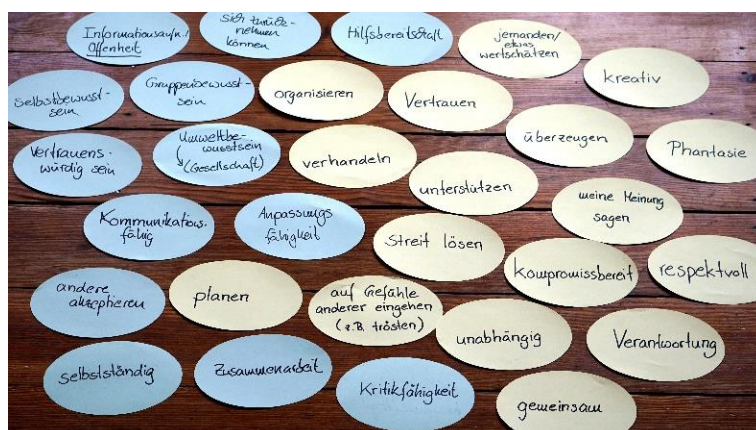 Informationsaufn./
Offenheit
Sich zurück-
nehmen
können
Hilfsbereitschaft
jemanden/
etwas
wertschätzen
kreativ
Selbstbewusst-
sein
Gruppenbewusst-
sein
organisieren
Vertrauen
überzeugen
Phantasie
Vertrauens-
würdig sein
Umweltbe-
wusstsein
(Gesellschaft)
verhandeln
unterstützen
meine Meinung
sagen
Kommunikations-
fähig
Anpassungs
fähigkeit
Streit lösen
kompromissbereit
respektvoll
andere
akzeptieren
planen
auf Gefühle
anderer eingehen
(z.B. trösten)
unabhängig
Verantwortung
selbstständig
Zusammenarbeit
Kritikfähigkeit
gemeinsam